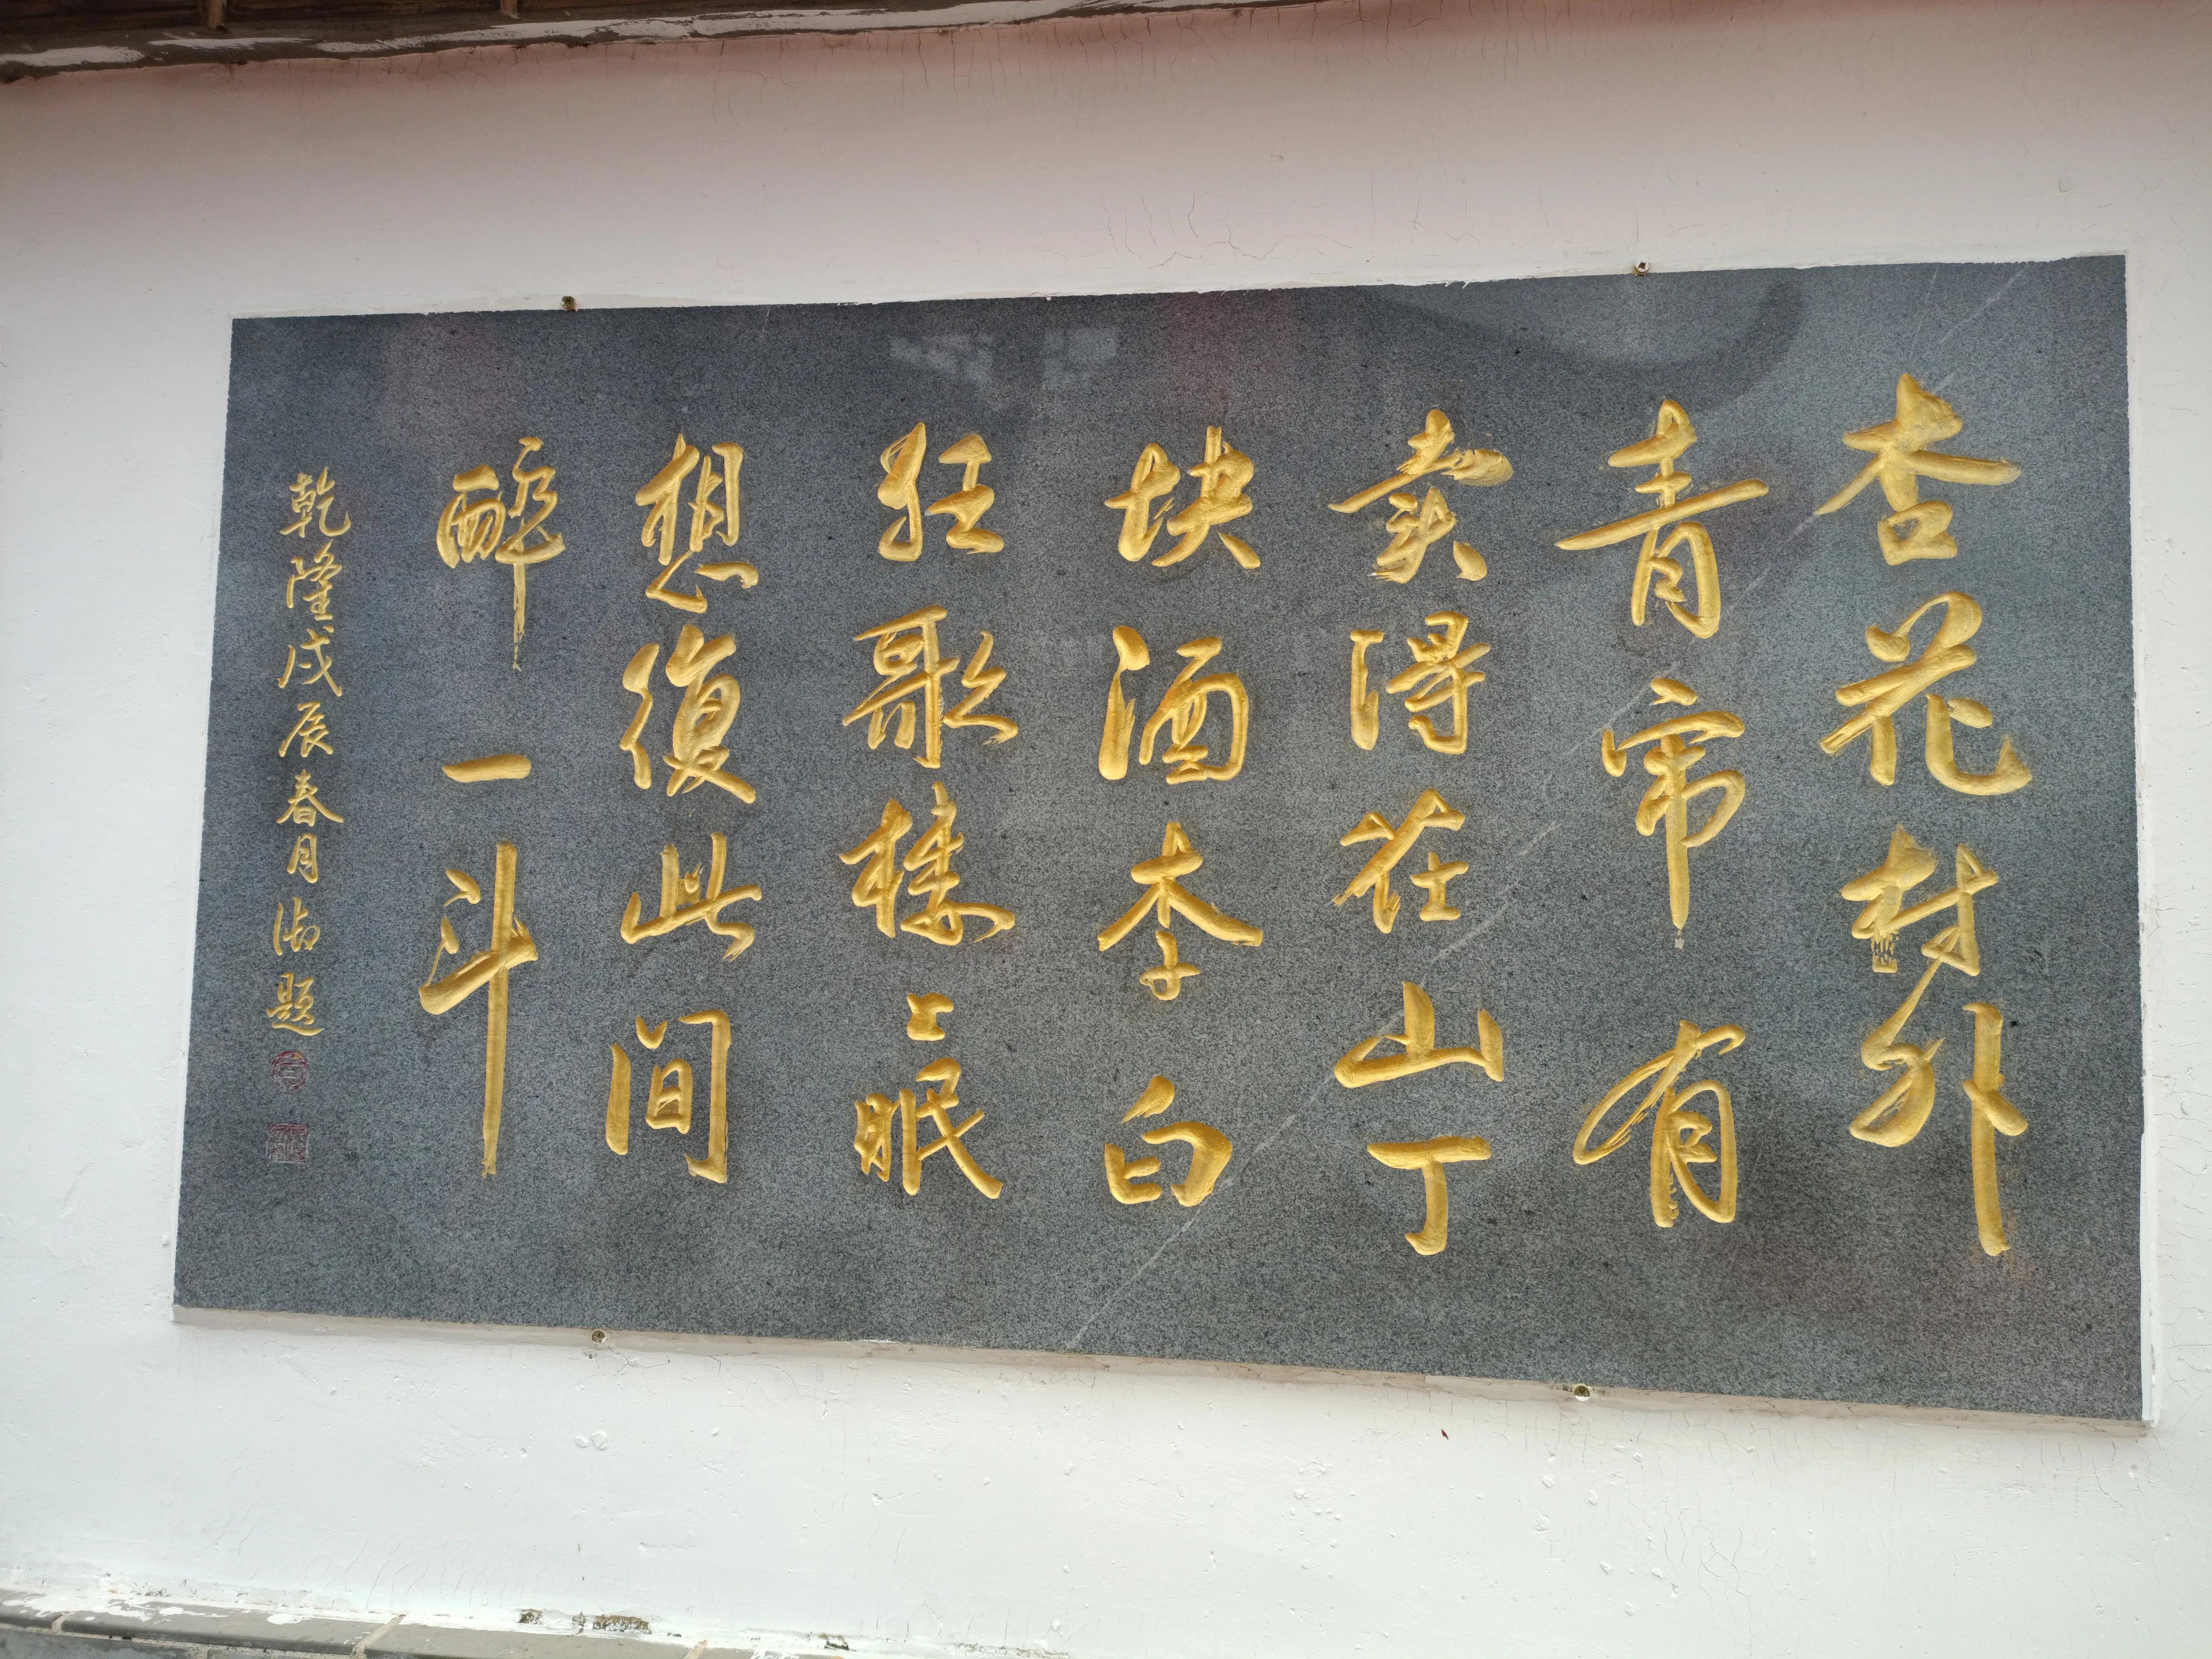 杏花村外
青帘有
卖得茌山丁
块酒李白
狂歌楼〻眠
想復此间
醉一斗
乾隆戊辰春月御题